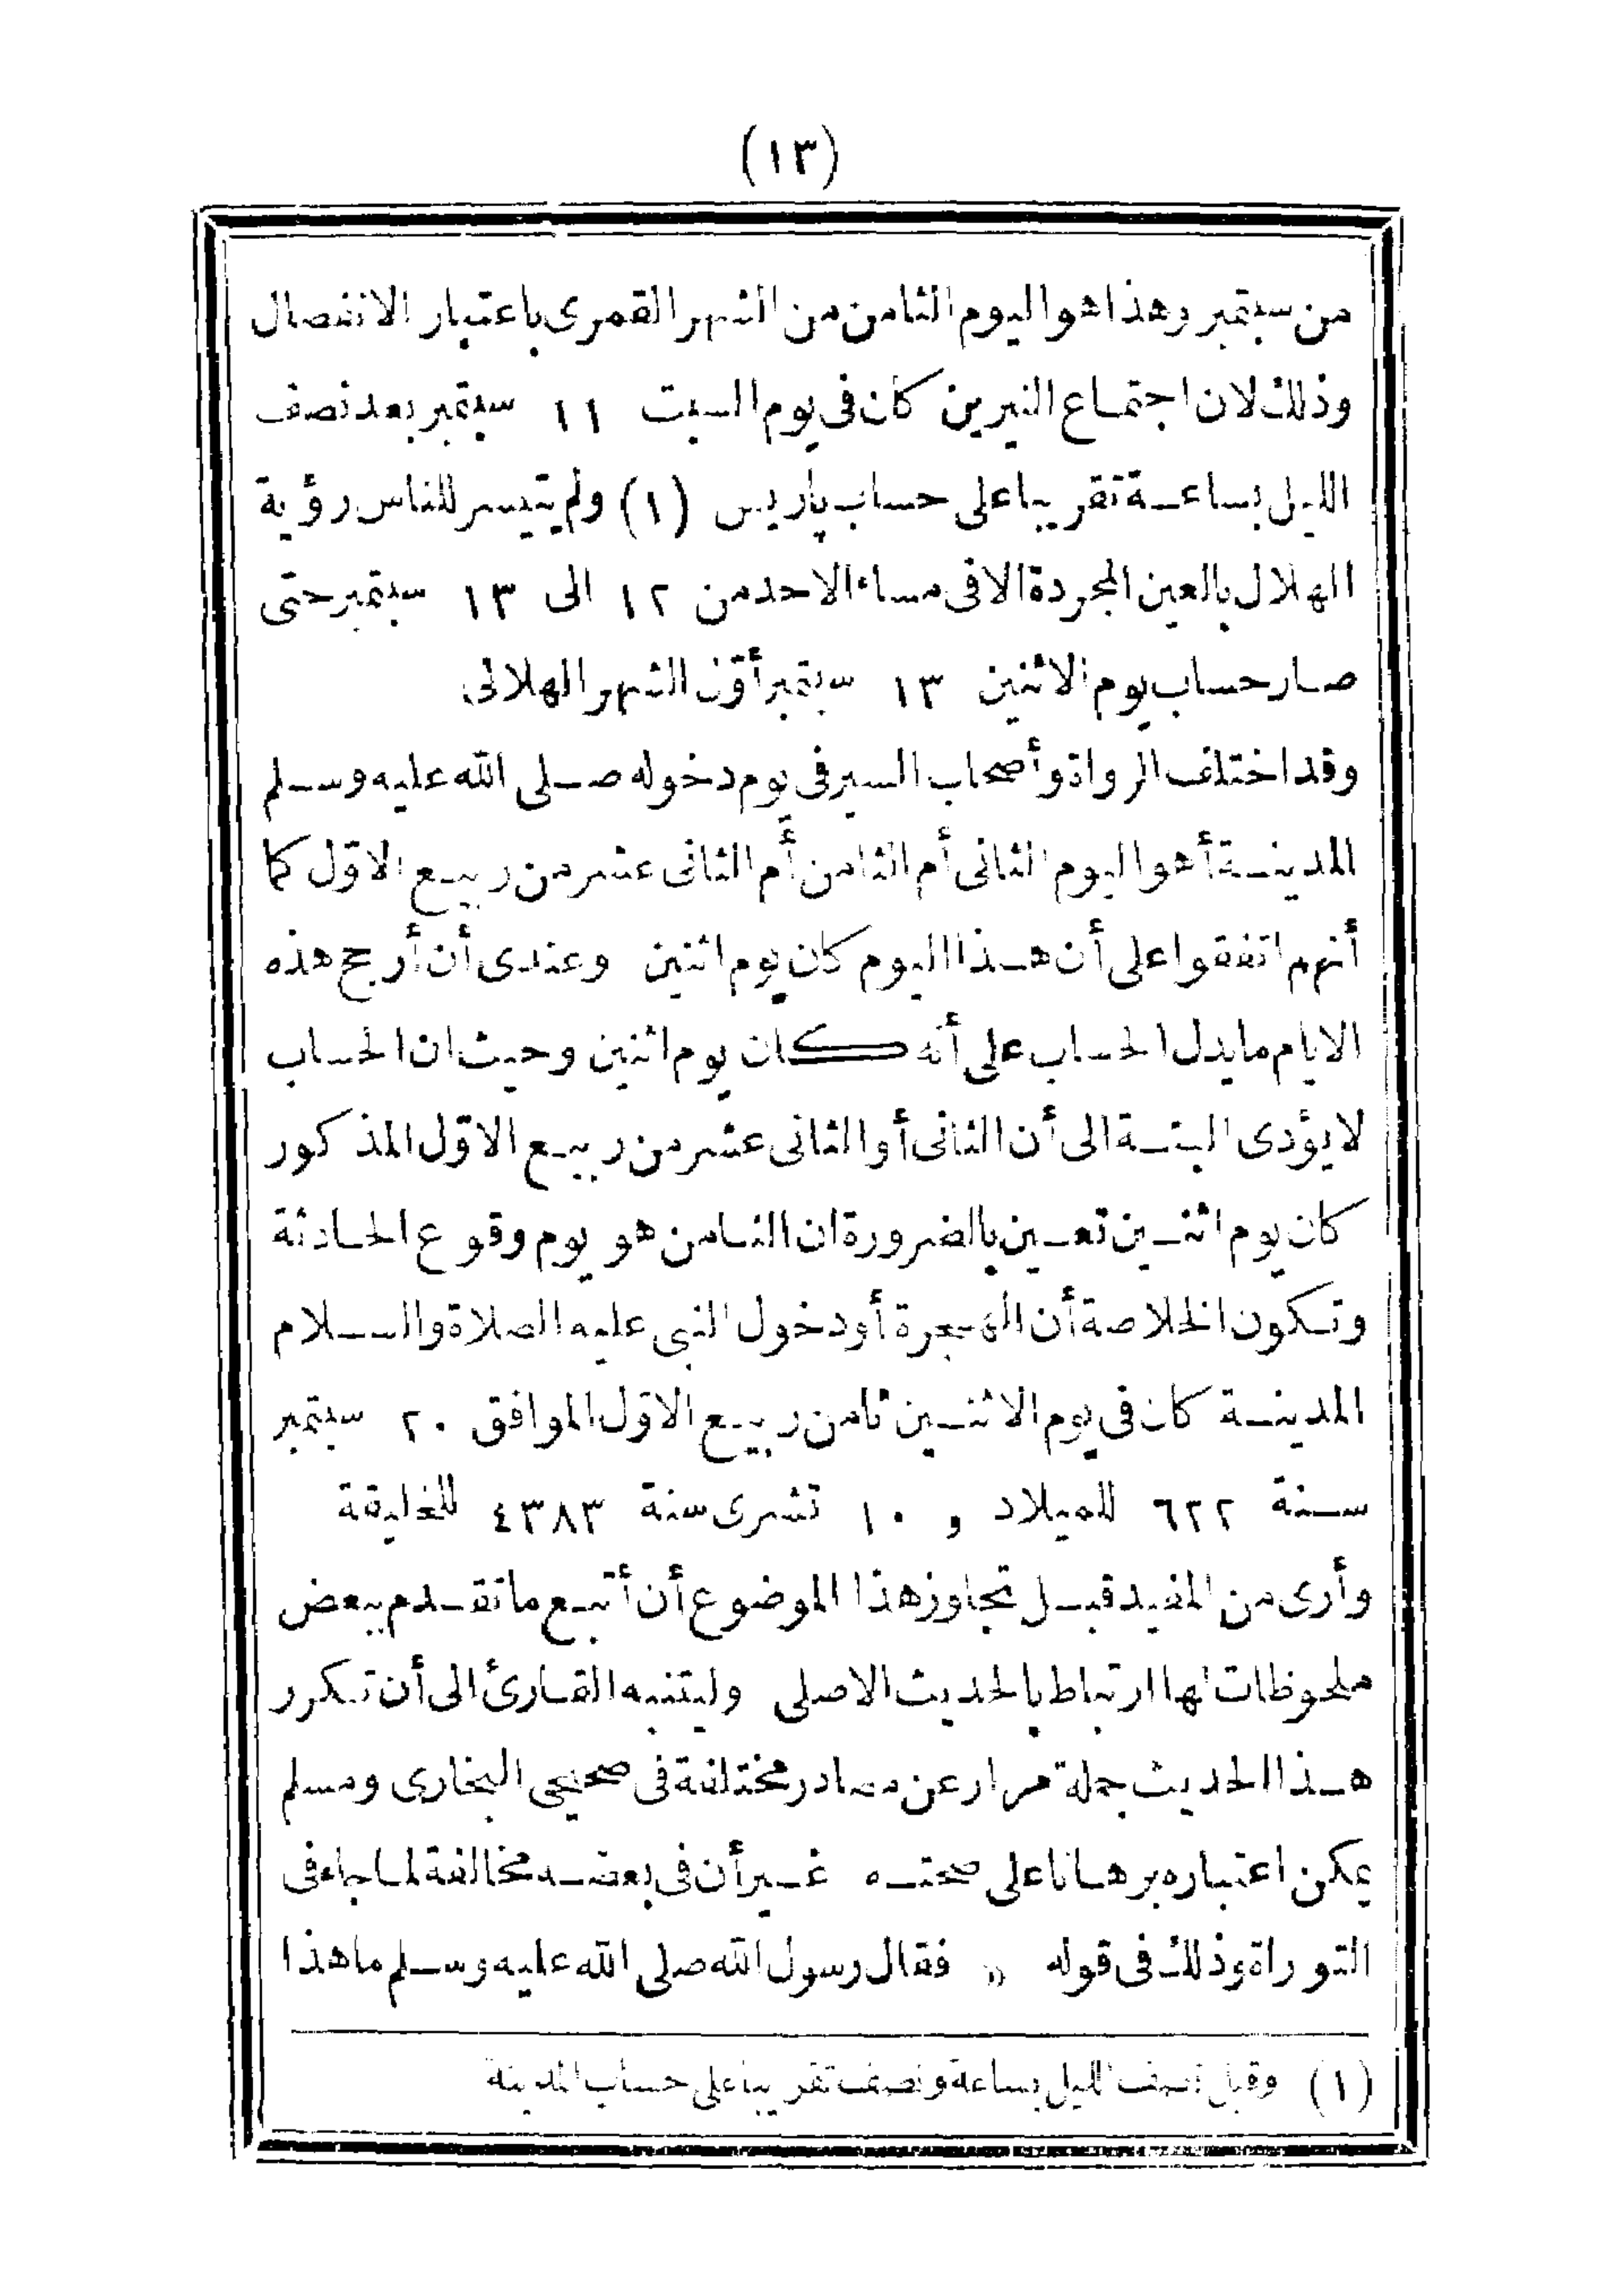 (١٣)
من سبتمبر وهذا هو اليوم الثامن من الشهر القمرى باعتبار الانفصال
وذلك لان اجتماع النيرين كان فى يوم السبت ١١ سبتمبر بعد نصف
الليل بساعة تقريبا على حساب پاريس (١) ولم يتيسر للناس رؤية
الهلال بالعين المجردة الا فى مساء الاحد من ١٢ الى ١٣ سبتمبر حتى
صار حساب يوم الاثنين ١٣ سبتمبر أوّل الشهر الهلالى
وقد اختلف الرواة وأصحاب السير فى يوم دخوله صلى الله عليه وسلم
المدينة أهو اليوم الثانى أم الثامن أم الثانى عشر من ربيع الاوّل كما
أنهم اتفقوا على أن هذا اليوم كان يوم اثنين وعندى أن أرجح هذه
الايام مايدل الحساب على أنه كان يوم اثنين وحيث ان الحساب
لا يؤدى البتة الى أن الثانى أو الثانى عشر من ربيع الاوّل المذكور
كان يوم اثنين تعين بالضرورة ان الثامن هو يوم وقوع الحادثة
وتكون الخلاصة أن الهجرة أو دخول النبى عليه الصلاة والسلام
المدينة كان فى يوم الاثنين ثامن ربيع الاوّل الموافق ٢٠ سبتمبر
سنة ٦٢٢ للميلاد و ١٠ تشرى سنة ٤٣٨٣ للخليقة
وأرى من المفيد قبل تجاوز هذا الموضوع أن أتبع ما تقدم ببعض
ملحوظات لها ارتباط بالحديث الاصلى وليتنبه القارئ الى أن تكرر
هذا الحديث جملة مرار عن مصادر مختلفة فى صحيحى البخارى ومسلم
يمكن اعتباره برهانا على صحته غير أن فى بعضه مخالفة لما جاء فى
التوراة وذلك فى قوله « فقال رسول الله صلى الله عليه وسلم ما هذا
(١) وقبل نصف الليل بساعة ونصف تقريبا على حساب المدينة